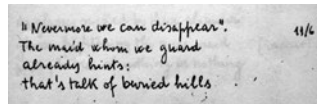 "Nevermore we can disappear". 11/6
The maid whom we guard
already hints:
that's talk of buried hills